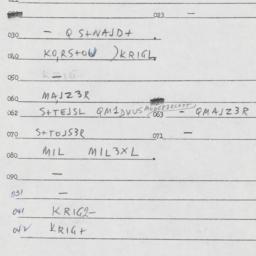 023 —
030 — Q S+NAJD+
040 KO,RS+OW )KRIGL
050
060 MAJZ3R
062 S+TEJSL QM1DVUS 063 - QMAJZ3R
070 S+TOJS3R 072 —
080 MIL MIL3XL.
090 —
091 —
041 KRIG2-
042 KRIG+